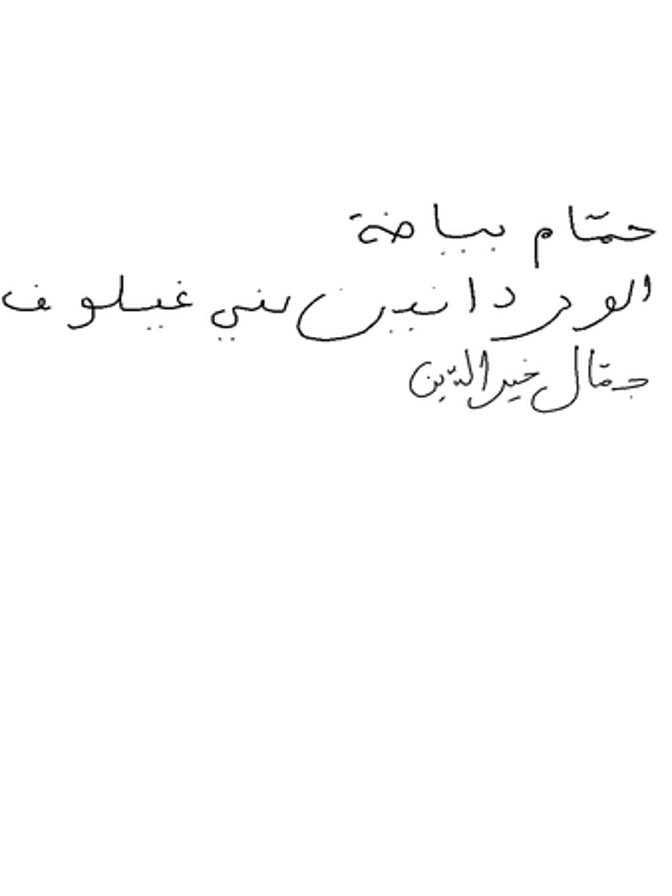 حمّام بياضة
الوردانين بني غيلوف
جمّال خير الدّين